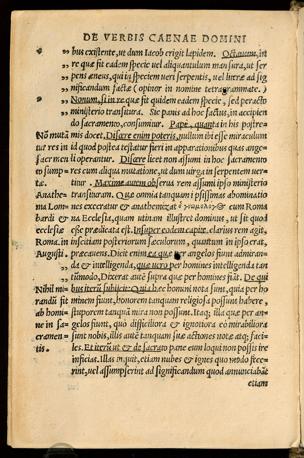 DE VERBIS CAENAE DOMINI
„ bus existente, ut dum Iacob erigit lapidem. Octauum, in
„ re quæ fit eadem specie uel aliquantulum mansura, ut ser
„ pens æneus, qui in speciem ueri serpentis, uel literæ ad sig
„ nificandum factæ (opinor in nomine tetragrammate.)
„ Nonum, si in re quæ fit quidem eadem specie, sed peracto
„ ministerio transitura. Sic panis ad hoc factus, in accipien
„ do sacramento, consumitur. Papè, quanta in his postre-
Nō mutā mis docet. Discere enim poteris, nullum ibi esse miraculum
tur res in id quod postea testatur fieri in apparitionibus quas ange-
sacramen li operantur. Discere licet non assumi in hoc sacramento
to sump- res cum aliqua mutatione, ut dum uirga in serpentem uer-
tæ. titur. Maxime autem obserua rem assumi ipso ministerio
Anathe- transituram. Quæ omnia tanquam ipsissimas abominatio
ma Lom nes execratur & anathemate cum Roma
bardi & na Ecclesia, quam utinam illustret dominus, ut sit quod
ecclesiæ esse prædicata est. Insuper eodem capite, clarius rem agit,
Romæ. in inscitiam posteriorum sæculorum, quantum in ipso erat,
Augusti. præcauens. Dicit enim ea quæ per angelos fiunt admiran-
„ da & intelligenda, quæ uero per homines intelligenda tan
„ tùmodo. Diceret autē supra quæ per homines fiūt. De qui
Nihil mi- bus iterū subijcit: Quia hæc homini nota sunt, quia per ho
randū fit minem fiunt, honorem tanquam religiosa possunt habere,
ab homi- stuporem tanquā mira non possunt. Itaq; illa quæ per an-
ne in sa- gelos fiunt, quo difficiliora & ignotiora eò mirabiliora
cramen- sunt nobis, illis autē tanquam suæ actiones notæ atq; faci-
tis. les. Et iterū ut & de sacrato pane eum loqui non possis ire
inficias. Illas inquit, etiam nubes & ignes quo modo fece-
rint, uel assumpserint ad significandum quod annunciabāt
etiam